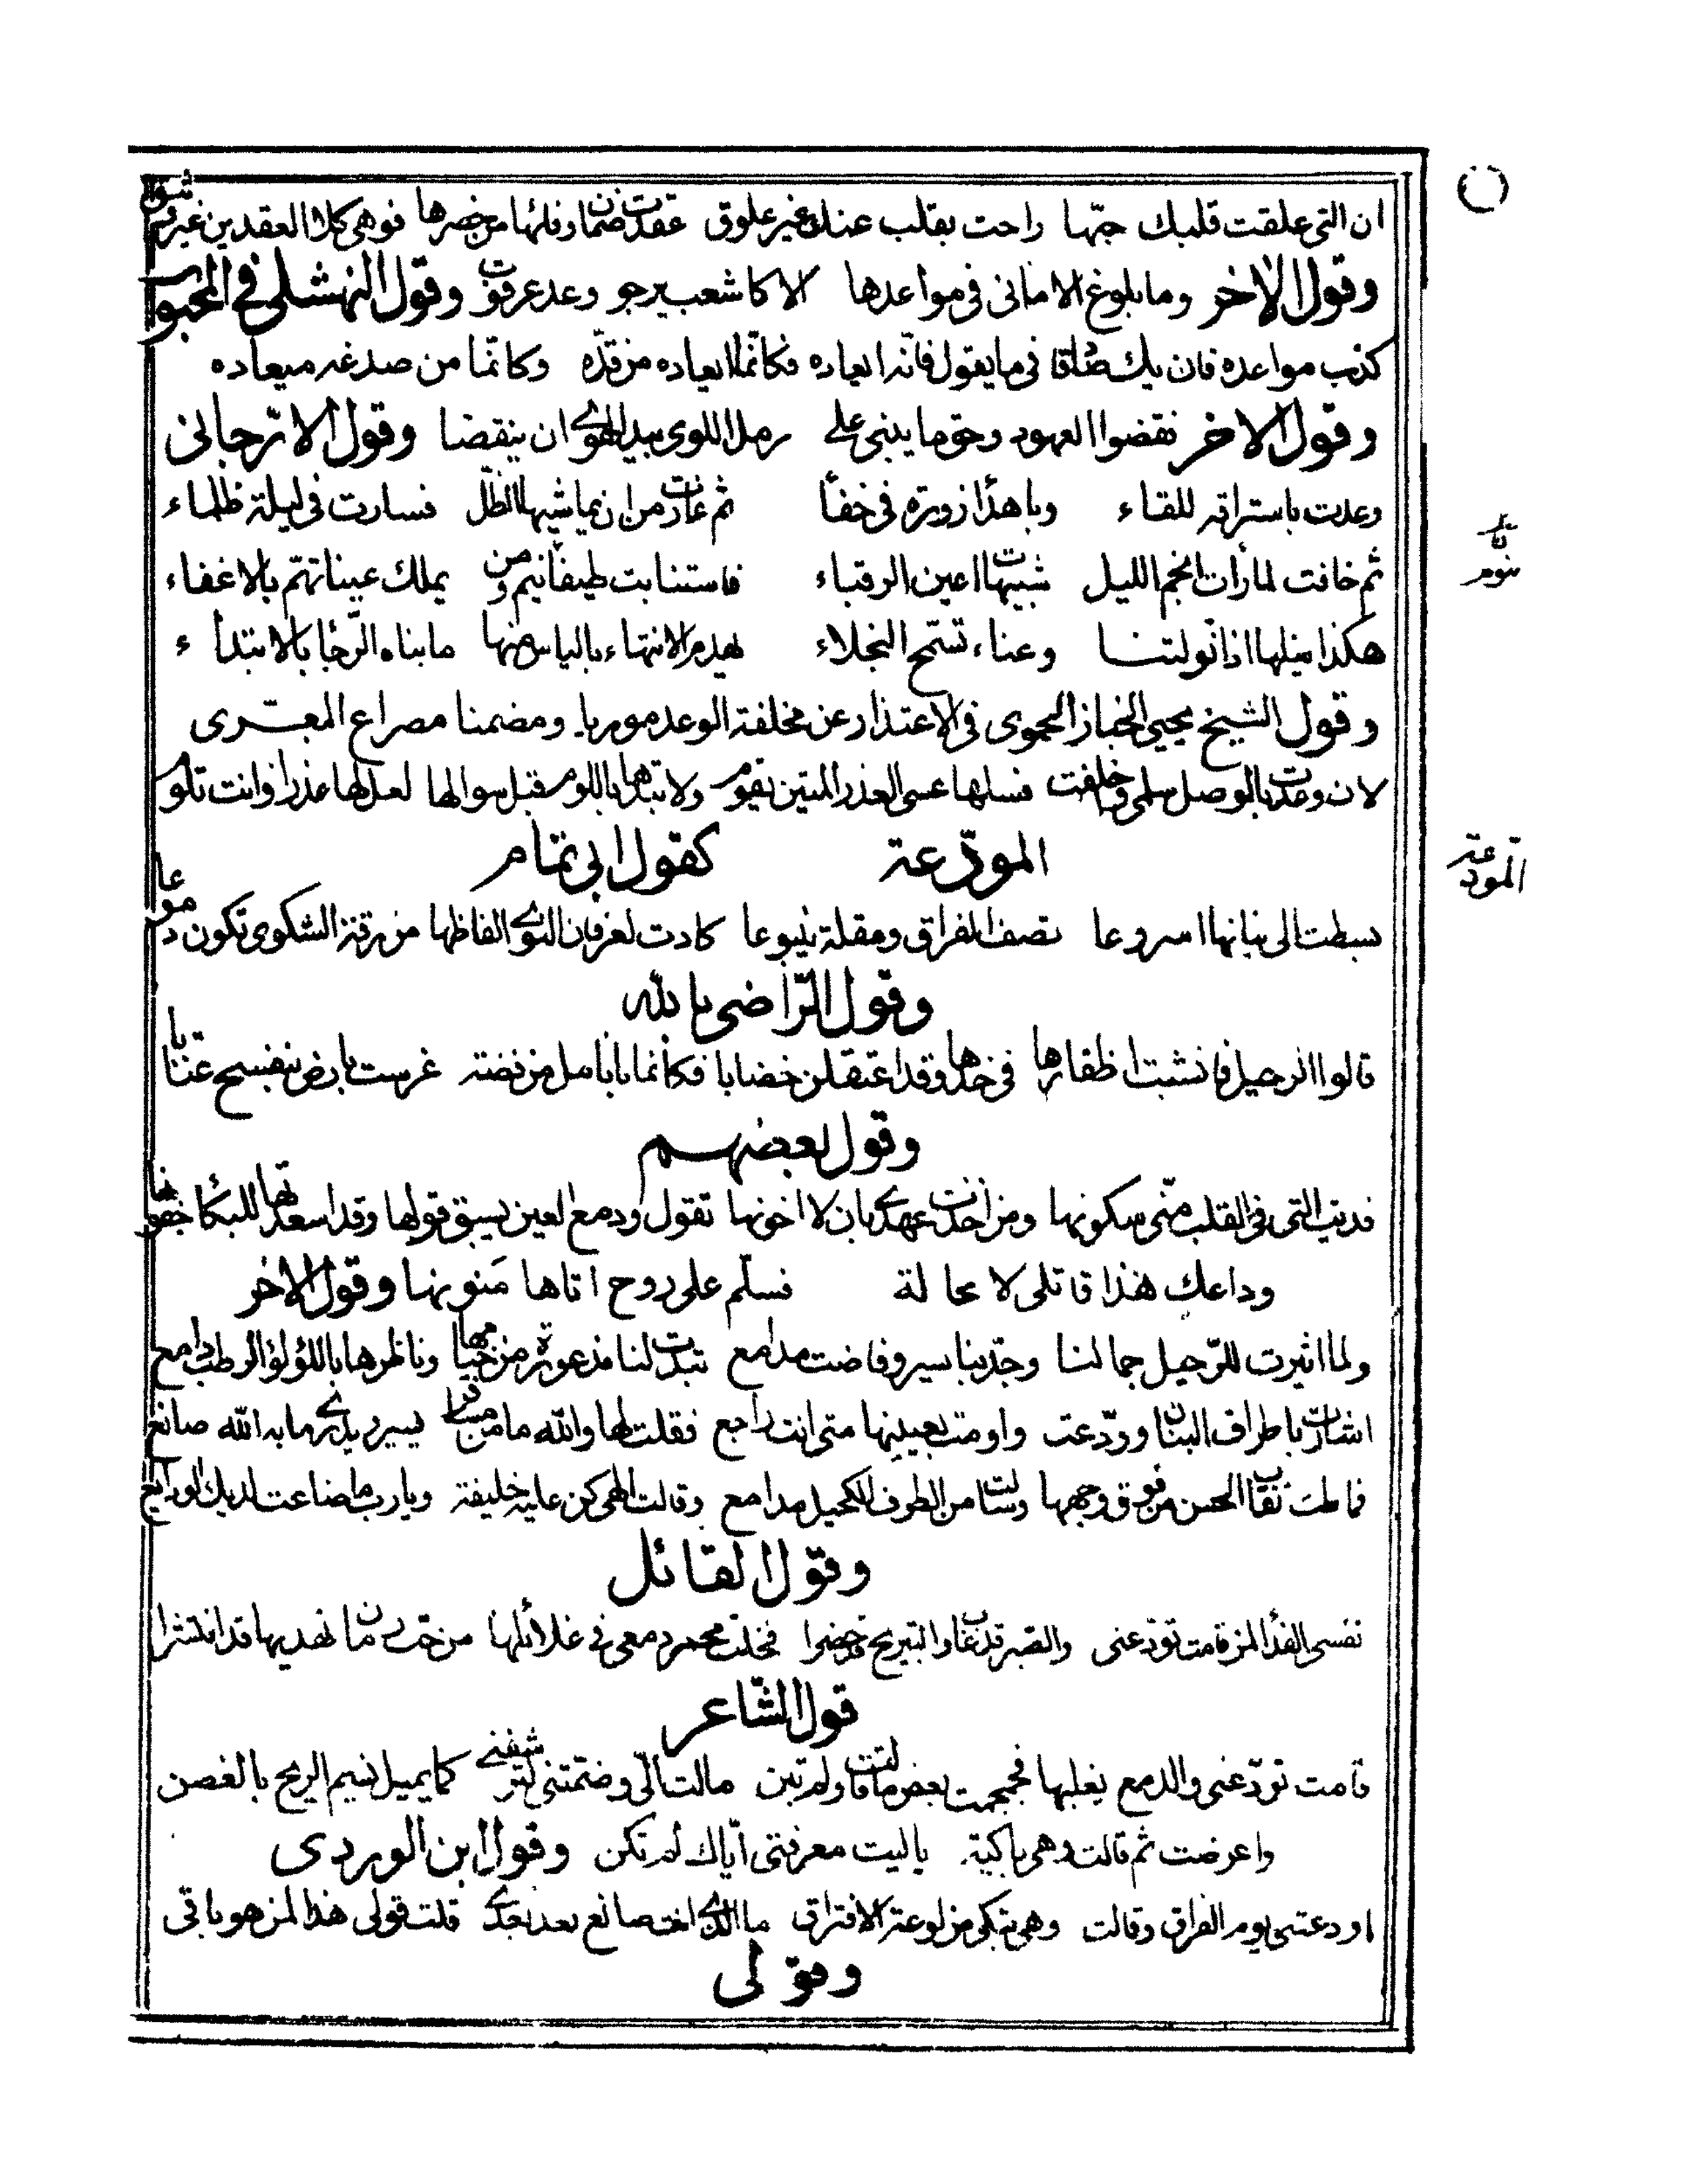 ان التى علقت قلبك حبّها راحت بقلب عنك غير علوق عقدت ضمان وفائها من خصرها فوهى كلا العقدين غير وثيق
وقول الاخر وما بلوغ الامانى فى مواعدها الا كاشعب يرجو وعد عرقوب وقول النهشلى فى المحبوب
كذب مواعده فان يك صادقا فى ما يقول فانّه ابعاده فكانّما ابعاده من قدّه وكانّما من صدغه ميعاده
وقول الاخر نقضوا العهود وحق ما يبنى على رمل اللوى بيد الهوى ان ينقضا وقول الارّجانى
وعدت باستراقه للقاء وباهداء زورة فى خفاء ثم غارت من ان يماشيها الظلّ فسارت فى ليلة ظلماء
ثم خافت لما رأت انجم الليل شبيهات اعين الرقباء فاستنابت طيفا يلم ومن يملك عينا تهمّ بالاغفاء
هكذا نيلها اذا نولتنا وعناء تسمّح البخلاء يهدم الانتهاء باليأس منها ما بناه الرّجا بالابتداء
وقول الشيخ يحيى الخباز الحموى فى الاعتذار عن مخلفة الوعد موريا ومضمنا مصراع المعرّى
لان وعدت بالوصل سلمى واخلفت فسلها عسى العذر المتين تقوم ولا تبدها باللوم قبل سوالها لعل لها عذرا وانت تلوم
المودّعة كقول ابى تمّام
بسطت الى بنانها اسروعا تصف الفراق ومقلة ينبوعا كادت لعرفان النوى الفاظها من رقة الشكوى تكون دموعا
وقول الرّاضى بالله
قالوا الرحيل فانشبت اظفارها فى خدها وقد اعتقلن خضابا فكانما بانامل من فضة غرست بارض بنفسج عنّابا
وقول بعضهم
فديت التى فى القلب منّى سكونها ومن اخذت عهدى بان لا اخونها تقول ودمع العين يسبق قولها وقد اسعدتها للبكا جفونها
وداعك هذا قاتلى لا محالة فسلّم على روح اتاها مَنونها وقول الاخر
ولما اثيرت للرّحيل جمالنا وجدّ بنا سير وفاضت مدامع تبدت لنا مذعورة من خبائها وناظرها باللؤلؤ الرطب دامع
اشارت باطراف البنان وودّعت واومت بعينيها متى انت راجع فقلت لها والله ما من مسافر يسير يدرى ما به الله صانع
فاطت نقاب الحسن من فوق وجهها وسالت من الطرف الكحيل مدامع وقالت الهى كن عليه خليفة ويا رب ما ضاعت لديك الودائع
وقول القائل
نفسى الفداء لمن قامت تودّعنى والصبر قد غاب والتبريح قد حضرا فخلت محمر دمعى فى غلائلها من تحت رمان نهديها قد انتثرا
قول الشّاعر
قامت تودّعنى والدمع يغلبها فجمجمت بعض ما قالت ولم تبن مالت الىّ وضمّتنى لترشفنى كما يميل نسيم الريح بالغصن
واعرضت ثم قالت وهى باكية يا ليت معرفتى ايّاك لم تكن وقول ابن الوردى
اودعتنى يوم الفراق وقالت وهى تبكى من لوعة الافتراق ما الذى انت صانع بعد بعدى قلت قولى هذا لمن هو باقى
وقولى
المودّعة